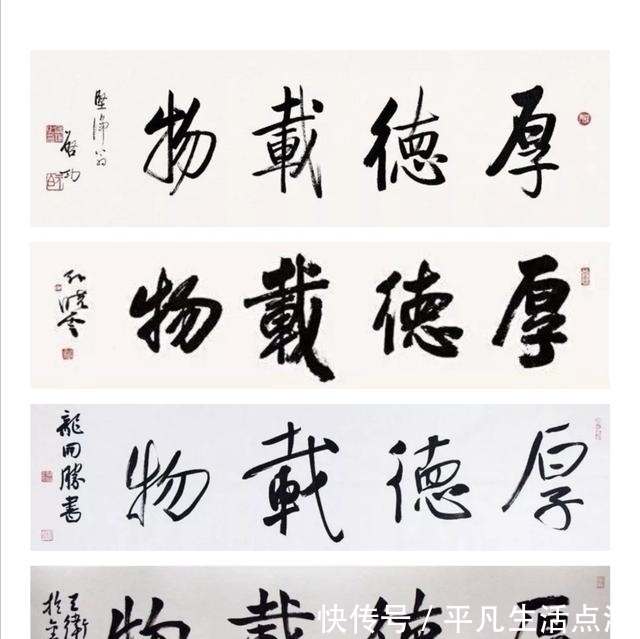 厚德載物
堅净翁
啓功
厚德載物
孙晓雲
厚德載物
龍開勝書
厚德載物
王衛
快传号 / 平凡生活点